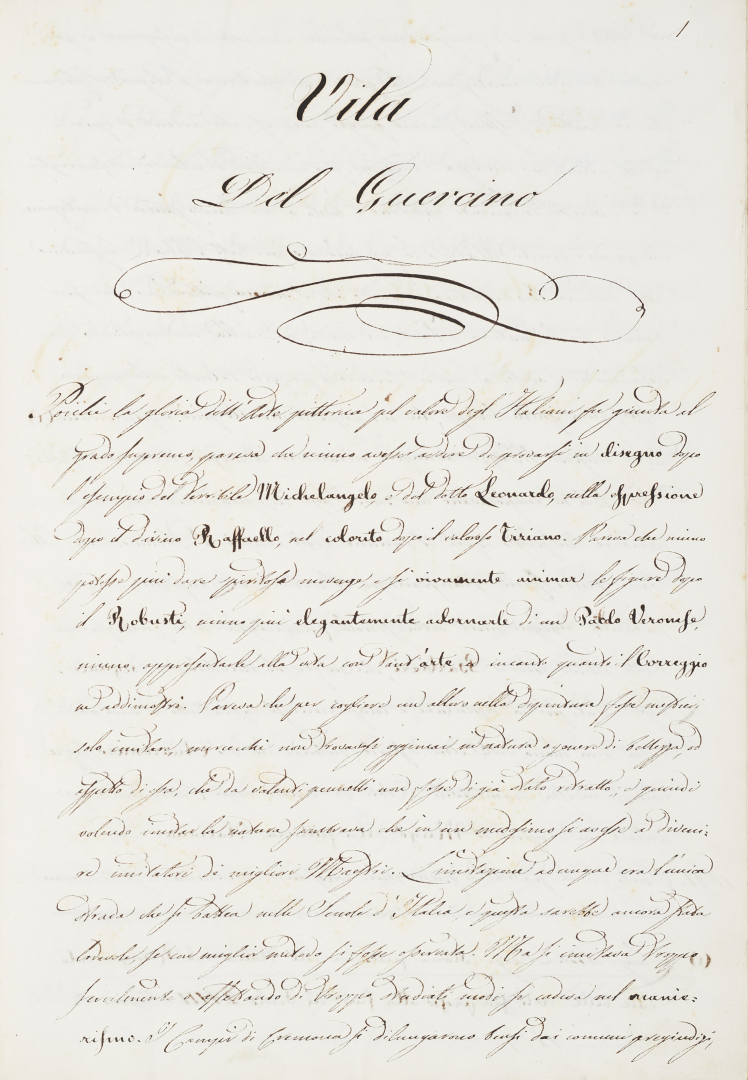 1
Vita
Del Guercino
Poichè la gloria dell'Arte pittorica pel valore degl'Italiani fu giunta al
grado supremo, pareva che ninno avesse ardire di provarsi in disegno dopo
l'esempio del terribile Michelangelo, e del dotto Leonardo, nella espressione
dopo il divino Raffaello, nel colorito dopo il valoroso Tiziano. Pareva che ninno
potesse più dare spiritose movenze, e sì vivamente animar le figure dopo
il Robusti, ninno più elegantemente adornarle di un Paolo Veronese,
ninno appresentarle alla vista con tant'arte ed incanto quanto il Correggio
ne addimostrò. Pareva che per cogliere un alloro nella dipintura fosse mestieri
solo imitare, mercecchè non trovavasi oggimai in natura o genere di bellezza, od
effetto di essa, che da valenti pennelli non fosse di già stato ritratto; e quindi
volendo imitar la natura sembrava che in un medesimo si avesse a diveni-
re imitatori di migliori Maestri. L'imitazione adunque era l'unica
strada che si battea nelle Scuole d'Italia, e questa sarebbe ancora stata
lodevole, se con miglior metodo si fosse osservata. Ma si imitava troppo
servilmente e affettando di troppo studiati modi si cadeva nel manie-
rismo. I Campi di Cremona si dilungarono bensì dai comuni pregiudizj,